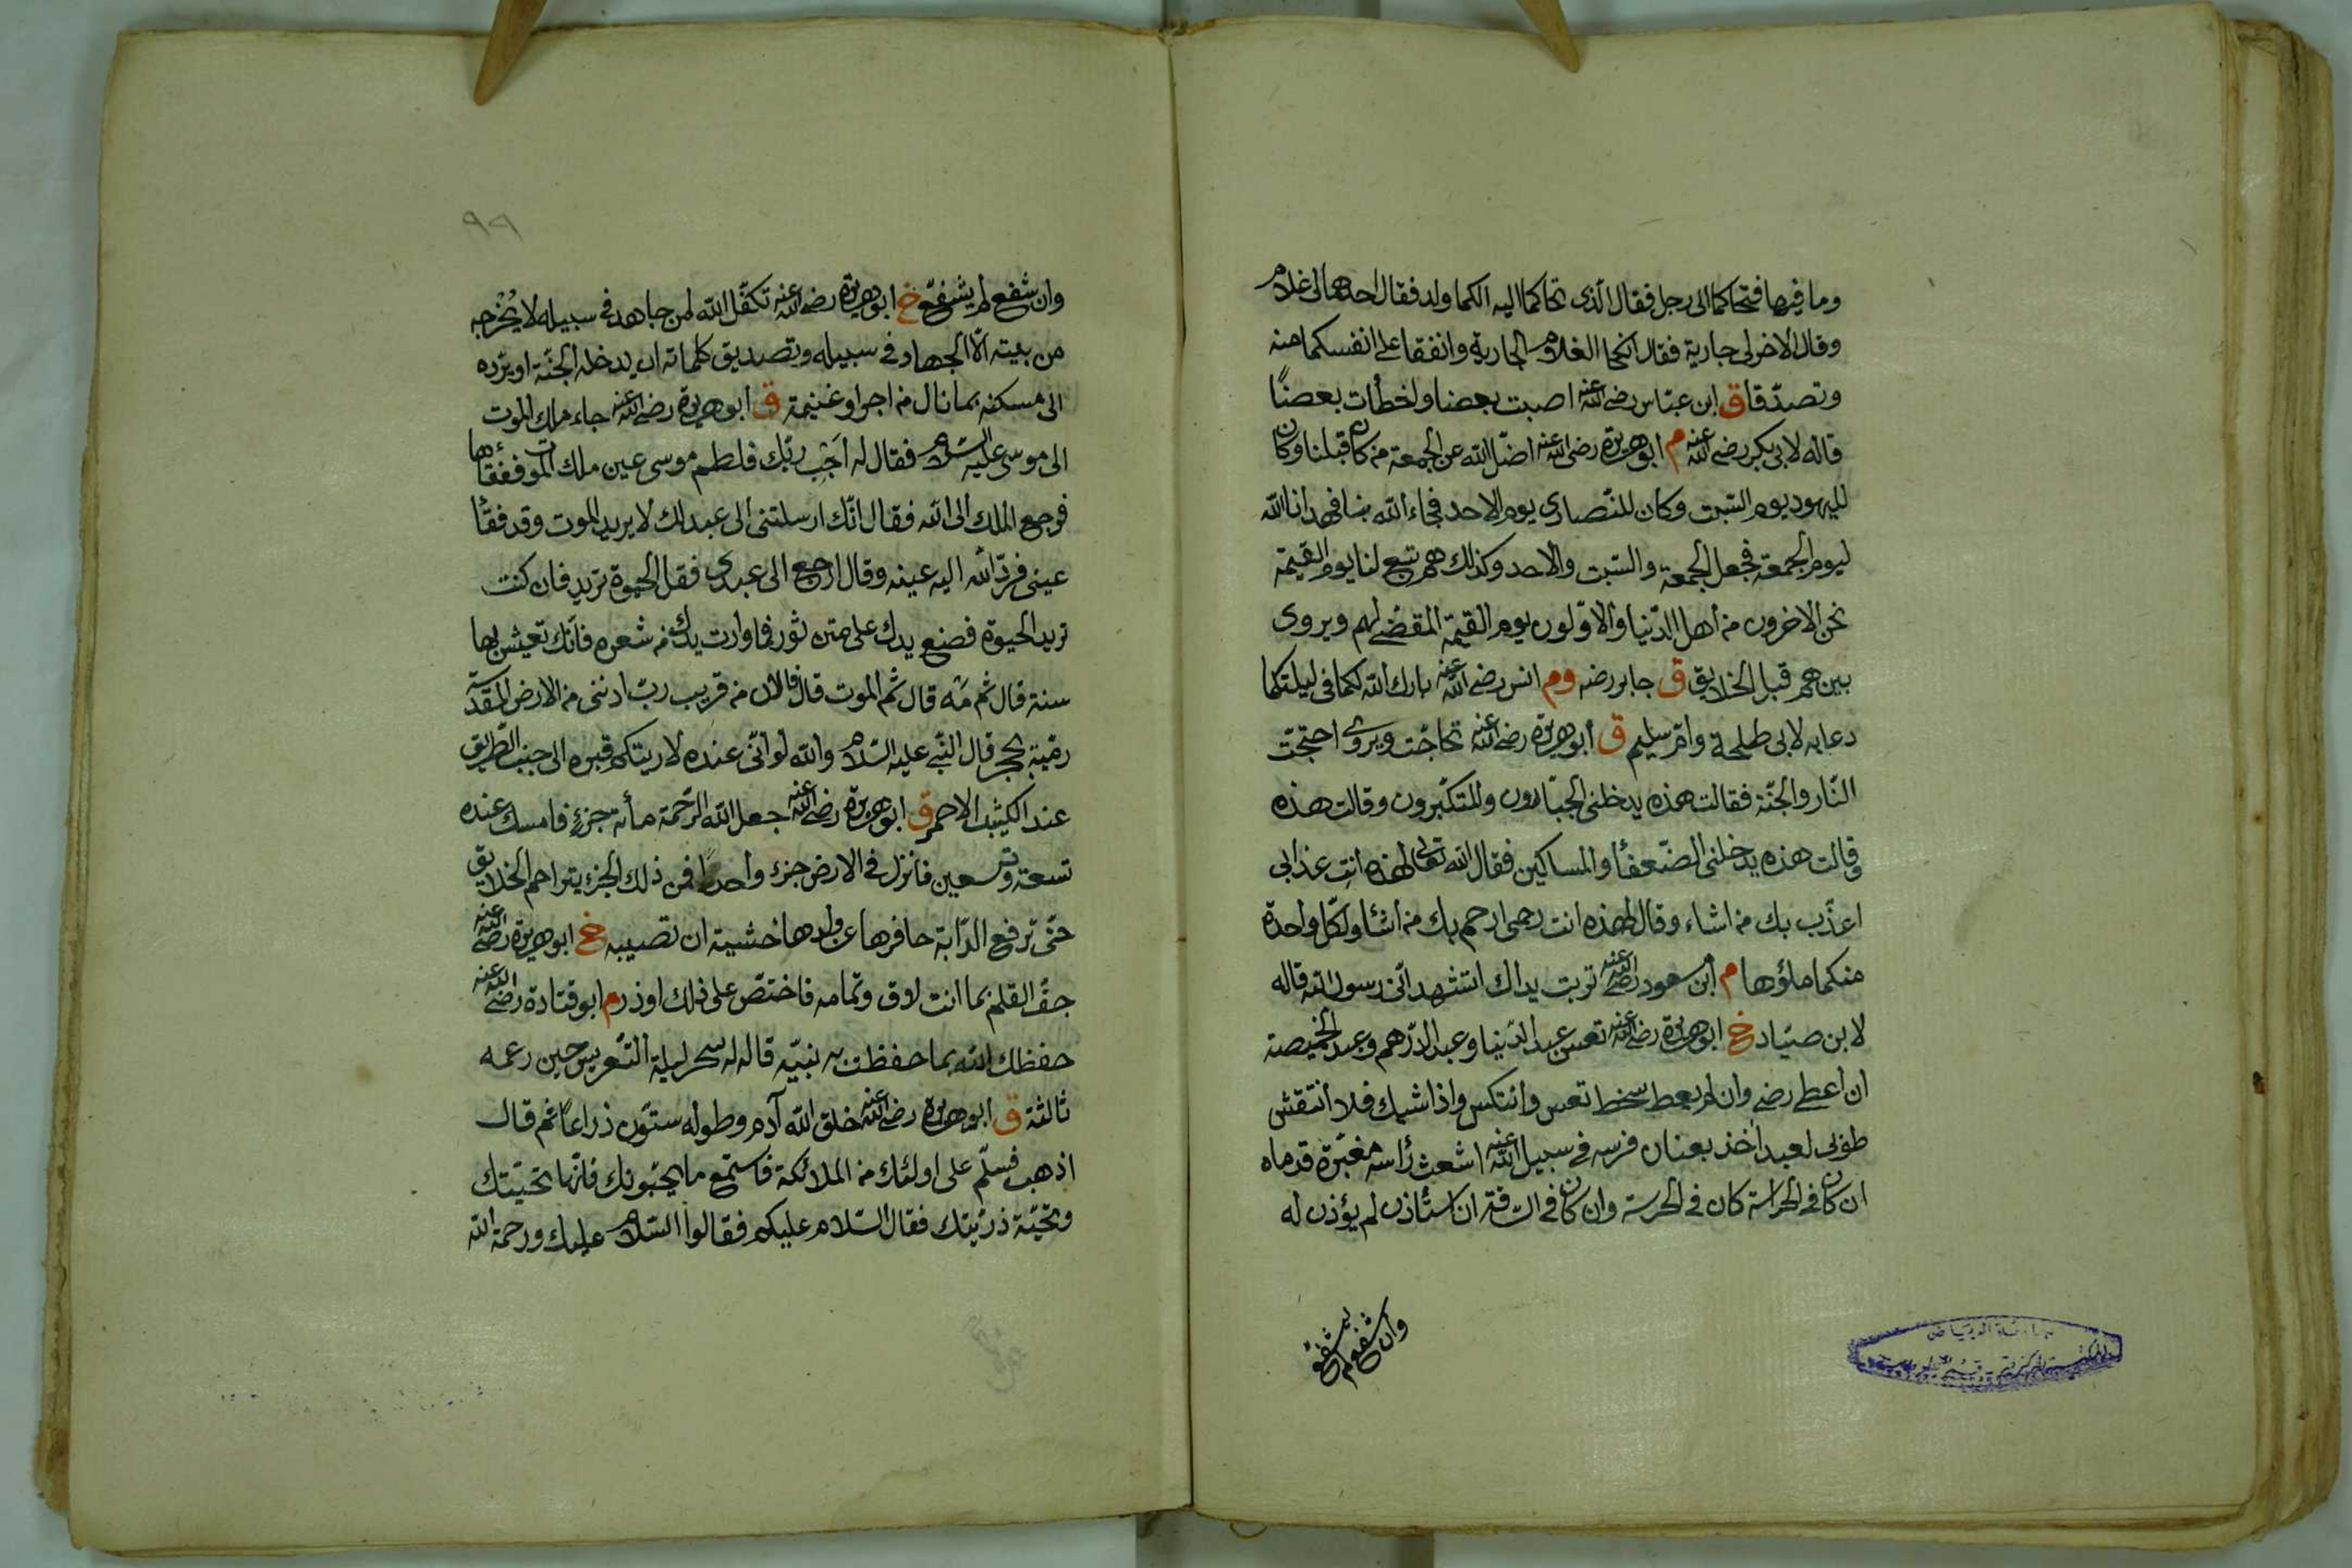 وما فيها فتحاكما الى رجل فقال الّذى تحاكما اليه الكما ولد فقال احدهما لى غلام
وقال الاخر لى جارية فقال انكحا الغلام الجارية وانفقا على انفسكما منه
وتصدّقا ق ابن عبّاس رضى الله عنه اصبت بعضا واخطأت بعضًا
قاله لابى بكر رضى الله عنه م ابو هريرة رضى الله عنه اضلّ الله عن الجمعة من كان قبلنا وكان
لليهود يوم السّبت وكان للنّصارى يوم الاحد فجاء الله بنا فهدانا الله
ليوم الجمعة فجعل الجمعة والسّبت والاحد وكذلك هم تبع لنا يوم القيمة
نحن الاخرون من أهل الدّنيا والاوّلون يوم القيمة المقضى لهم ويروى
بينهم قبل الخلايق ق جابر رضه وم انس رضى الله عنه بارك الله لكما فى ليلتكما
دعا به لابى طلحة وامّ سليم ق أبو هريرة رضى الله عنه تحاجّت ويروى احتجّت
النّار والجنّة فقالت هذه يدخلنى الجبّارون والمتكبّرون وقالت هذه
وقالت هذه يدخلنى الضّعفأ والمساكين فقال الله تعالى لهذه انتِ عذابى
اعذّب بك من اشاء وقال لهذه انت رحمى ارحم بك من اشأ ولكلّ واحدة
منكما ملؤها م أبن مسعود رضى الله عنه تربت يداك اتشهد انّى رسول الله قاله
لابن صيّاد خ ابو هريرة رضى الله عنه تعس عبد الدّينا وعبد الدّرهم وعبد الخميصة
ان أعطى رضى وان لم يعط سخط تعس وانتكس واذا شيك فلا انتقش
طوبى لعبد اٰخذ بعنان فرسه فى سبيل الله اشعث رأسه مغبّرة قدماه
ان كان فى الحراسة كان فى الحرسة وان كان فى السّاقة ان استأذن لم يؤذن له
وان شفع لم يشفّع
٩٨
وان شفع لم يشفّع خ ابو هريرة رضى الله عنه تكفّل الله لمن جاهد فى سبيله لا يُخْرجه
من بيته الّا الجهاد فى سبيله وتصديق كلماته ان يدخله الجنّة او يرّده
الى مسكنه بما نال من اجر او غنيمة ق ابو هريرة رضى الله عنه جاء ملك الموت
الى موسى عليه السّلام فقال له اَجِب ربّك فلطم موسى عين ملك الموت ففقأها
فرجع الملك الى الله فقال انّك ارسلتنى الى عبد لك لا يريد الموت وقد فقأ
عينى فردّ الله اليه عينه وقال ارجع الى عبدى فقل الحيوة تريد فان كنت
تريد الحيوة فضع يدك على متن ثور فما وارت يدك من شعره فانّك تعيش بها
سنة قال ثم مَه قال ثم الموت قال فالان من قريب ربّ ادننى من الارض المقدّسة
رميّة بحجر قال النّبى عليه السّلام والله لو انّى عنده لاريتكم قبره الى جنب الطّريق
عند الكثيب الاحمر ق ابو هريرة رضى الله عنه جعل الله الرّحمة مأة جزء فامسك عنده
تسعة وتسعين فانزل فى الارض جزء واحدًا فمن ذلك الجزء يتراحم الخلايق
حتّى ترفع الدّابة حافرها عن ولدها خشية ان تصيبه خ ابو هريرة رضى الله عنه
جفّ القلم بما انت لاق وتمامه فاختصّ على ذلك او ذر م ابو قتادة رضى الله عنه
حفظك الله بما حفظت به نبيّه قاله له سحر ليلة التّعريس حين دعمه
ثالثة ق ابو هريرة رضى الله عنه خلق الله آدم وطوله ستّون ذراعًا ثم قال
اذهب فسلّم على اولئك من الملائكة فاستمع ما يحيّونك فانّها تحيّتك
وتحيّة ذرّيتك فقال السّلام عليكم فقالوا السّلام عليك ورحمة الله